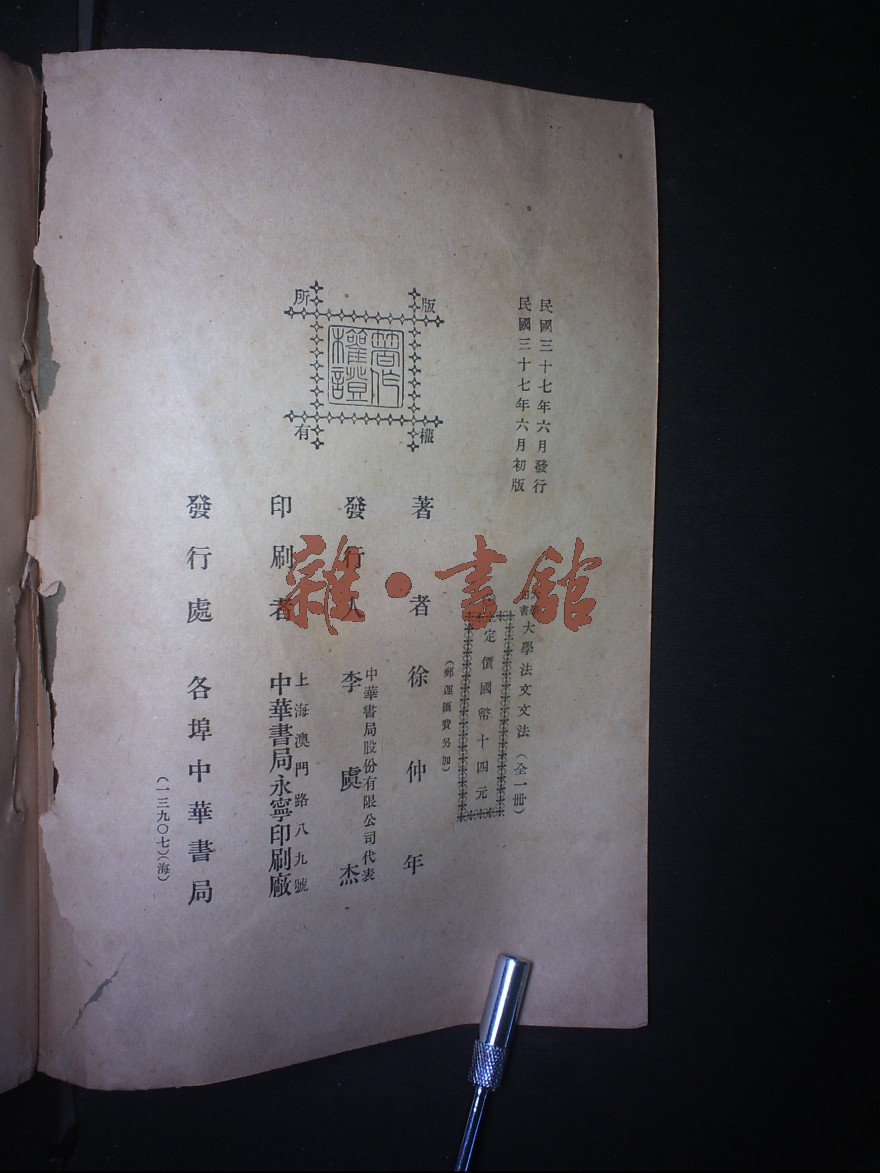 民國三十七年六月發行
民國三十七年六月初版
大學用書 大學法文文法（全一冊）
定價國幣十四元
（郵運匯費另加）
著者 徐仲年
發行人 李虞杰
中華書局股份有限公司代表
印刷者 中華書局永寧印刷廠
上海澳門路八九號
發行處 各埠中華書局
（一三九〇七）（海）
版權所有
著作權證
雜·書館